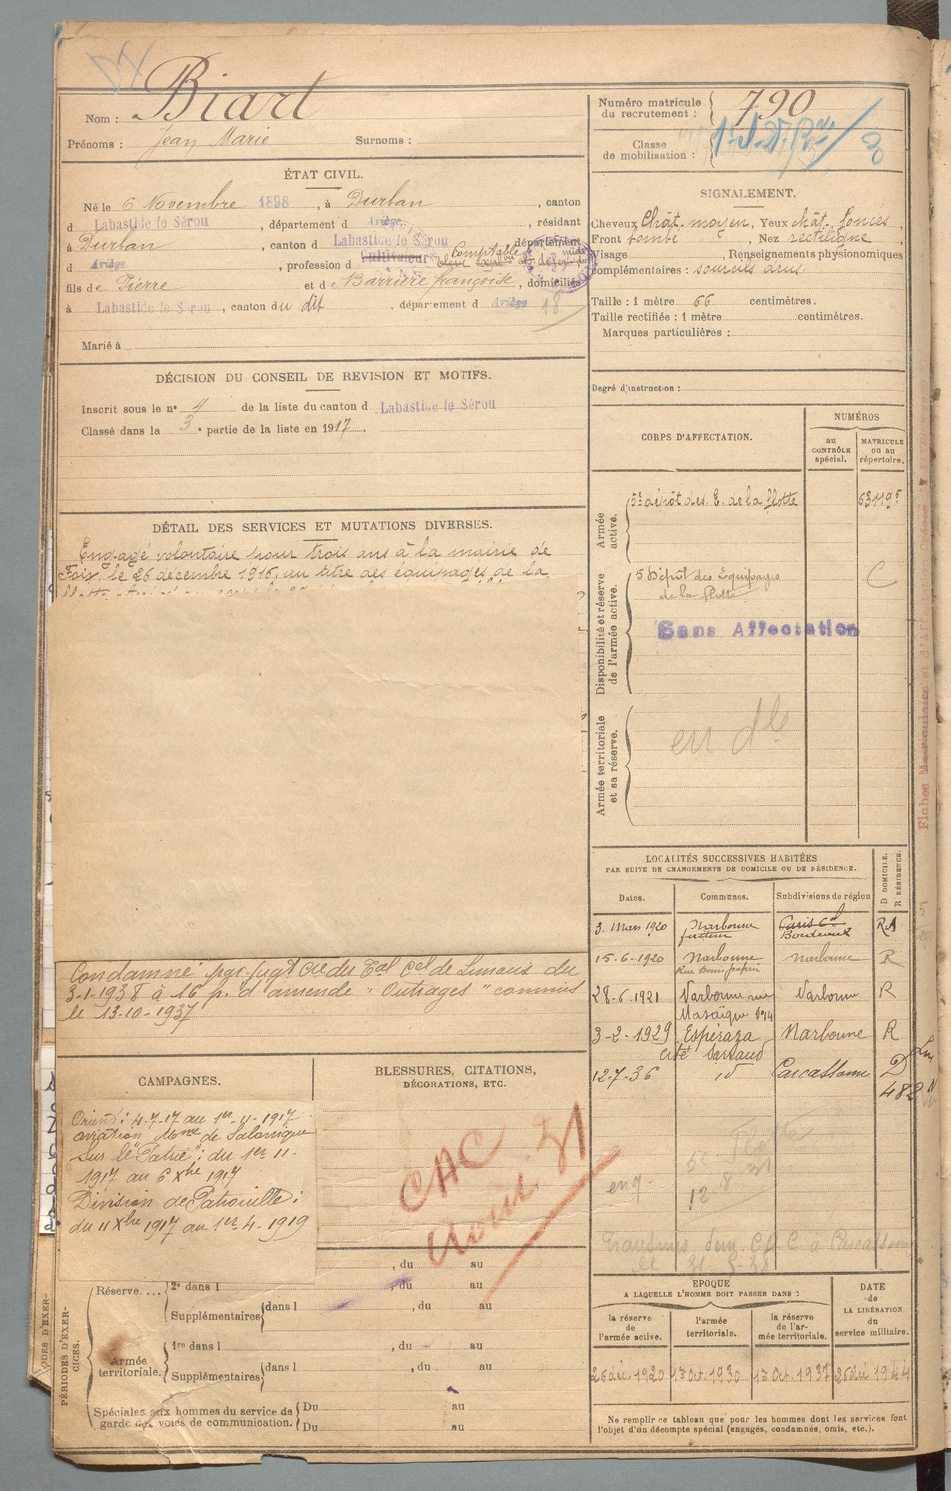 Nom : Biart
Prénoms : Jean Marie Surnoms :
ÉTAT CIVIL.
Né le 6 Novembre 1898, à Durban, canton
d Labastide le Sérou, département d Ariège, résidant
à Durban, canton d Labastide-le-Sérou, département
d Ariège, profession d Cultivateur Comptable
fils de Pierre et de Barrière françoise, domiciliés
à Labastide le Sérou, canton du dit, département d Ariège
18
Marié à
DÉCISION DU CONSEIL DE REVISION ET MOTIFS.
Inscrit sous le n° 4 de la liste du canton d Labastide le Sérou
Classé dans la 3e partie de la liste en 1917.
DÉTAIL DES SERVICES ET MUTATIONS DIVERSES.
Engagé volontaire pour trois ans à la mairie de
Foix, le 26 décembre 1916, au titre des équipages de la
Condamné par jugt du Cal Cel de Limoux du
3-1-1938 à 16 f. d'amende "Outrages" commis
le 13-10-1937
CAMPAGNES.
Orient : 4-7-17 au 1er-11-1917
aviation de Salonique
sur le "Patrie" : du 1er 11-
1917 au 6 Xbre 1917
Division de Patrouille :
du 11 Xbre 1917 au 1er-4-1919
BLESSURES, CITATIONS,
DÉCORATIONS, ETC.
Août 31
, du au
PÉRIODES D'EXERCICES.
Réserve.... 2e dans l , du au
Supplémentaires dans l , du au
Armée territoriale. 1re dans l , du au
Supplémentaires dans l , du au
Spéciales aux hommes du service de garde des voies de communication. Du au
Du au
Numéro matricule du recrutement : 790
Classe de mobilisation :
SIGNALEMENT.
Cheveux chât. moyen, Yeux chât. foncés
Front bombé, Nez rectiligne
Visage , Renseignements physionomiques
complémentaires : sourcils drus.
Taille : 1 mètre 66 centimètres.
Taille rectifiée : 1 mètre centimètres.
Marques particulières :
Degré d'instruction :
CORPS D'AFFECTATION.
NUMÉROS
au CONTRÔLE spécial.
MATRICULE ou au répertoire.
Armée active.
5e dépôt des E. de la flotte 53119 5
Disponibilité et réserve de l'armée active.
5 Dépôt des Équipages
de la flotte
C
Sans Affectation
Armée territoriale et sa réserve.
LOCALITÉS SUCCESSIVES HABITÉES
PAR SUITE DE CHANGEMENTS DE DOMICILE OU DE RÉSIDENCE.
Dates. Communes. Subdivisions de région D DOMICILE. R RÉSIDENCE.
3. Mars 1920 Narbonne Bordeaux
15-6-1920 Narbonne Narbonne R
28-6-1921 Narbonne rue Narbonne R
Mosaïque
3-2-1929 Espéraza Narbonne R
cité
12-7-36 id Carcassonne D
482
eng.
12
à Carcassonne
EPOQUE
A LAQUELLE L'HOMME DOIT PASSER DANS :
la réserve de l'armée active.
l'armée territoriale.
la réserve de l'armée territoriale.
DATE de LA LIBÉRATION du service militaire.
26 déc. 1920 1er Oct. 1930 1er Oct. 1937 26 déc 1944
Ne remplir ce tableau que pour les hommes dont les services font
l'objet d'un décompte spécial (engagés, condamnés, omis, etc.).